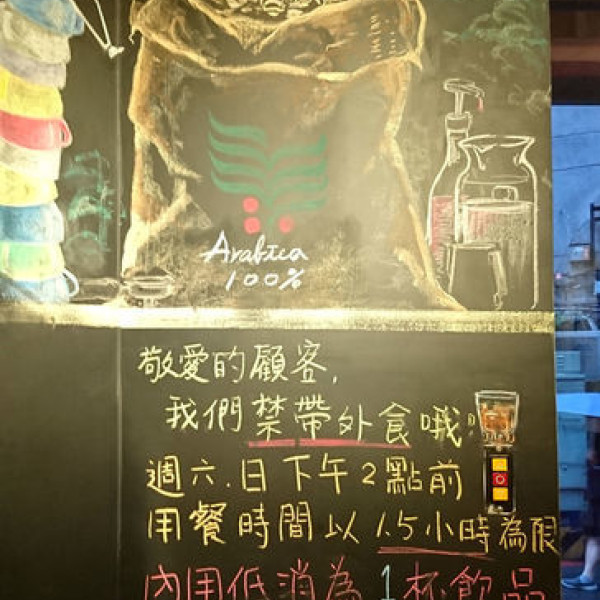 Arabica
100%
敬愛的顧客,
我們禁帶外食哦!
週六.日下午2點前
用餐時間以1.5小時為限
內用低消為1杯飲品